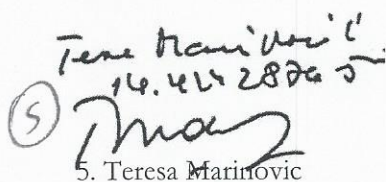 Tere Marinovic
14.424.2876-5
5
5. Teresa Marinovic